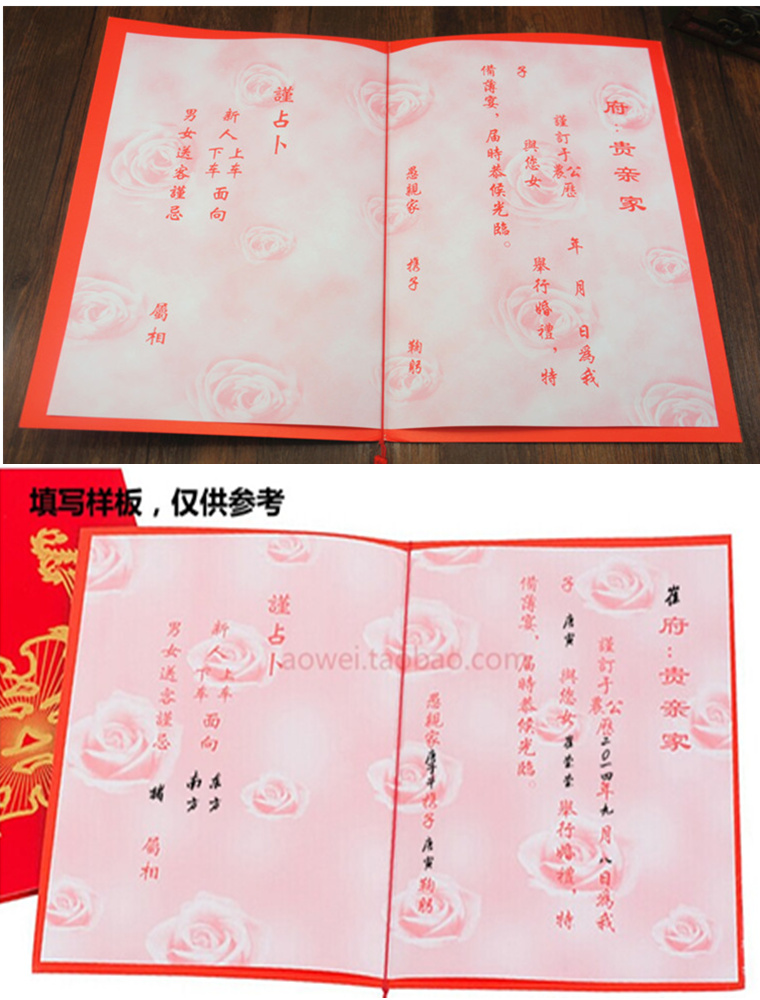 府：贵亲家
謹訂于公農歷 年 月 日為我
子 與您女 舉行婚禮，特
備薄宴，届時恭候光臨。
愚親家 携子 鞠躬
謹占卜
新人上车下车面向
男女送客謹忌 屬相
填写样板，仅供参考
崔府：贵亲家
謹訂于公農歷二〇一四年九月八日為我
子唐寅與您女崔莹莹舉行婚禮，特
備薄宴，届時恭候光臨。
愚親家 携子唐寅鞠躬
謹占卜
新人上车下车面向东方南方
男女送客謹忌猪屬相
aowei.taobao.com